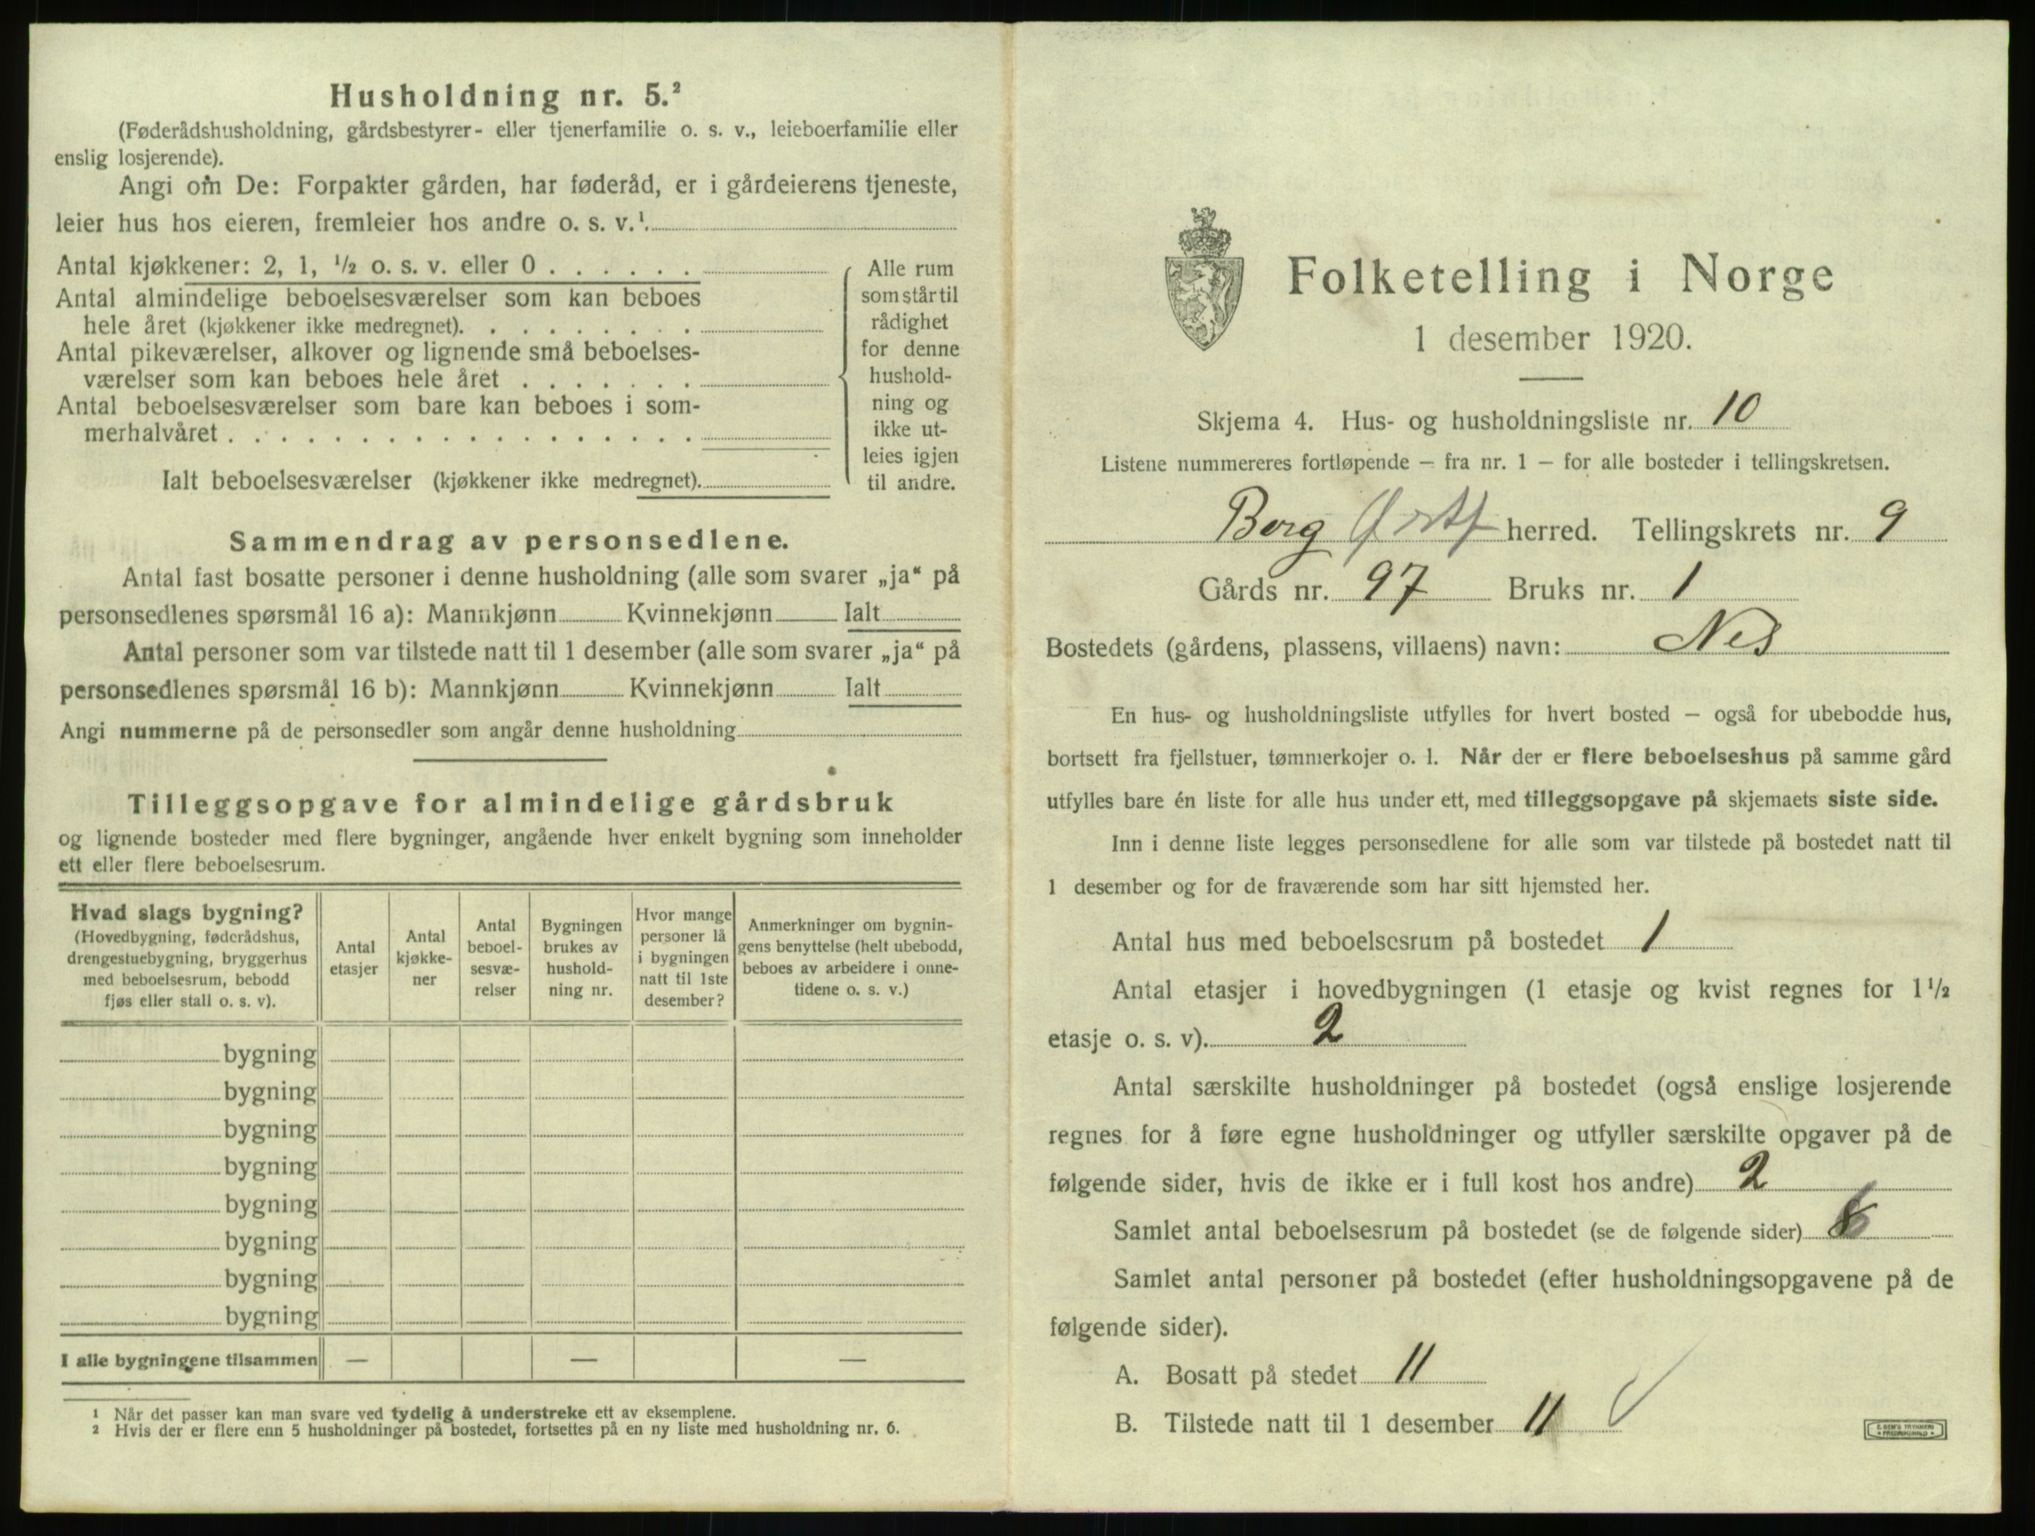 Husholdning nr. 5.²
(Føderådshusholdning, gårdsbestyrer- eller tjenerfamilie o. s. v., leieboerfamilie eller
enslig losjerende).
Angi om De: Forpakter gården, har føderåd, er i gårdeierens tjeneste,
leier hus hos eieren, fremleier hos andre o. s. v.¹
Antal kjøkkener: 2, 1, ½ o. s. v. eller 0 . . . . . .
Antal almindelige beboelsesværelser som kan beboes
hele året (kjøkkener ikke medregnet). . . . . . . . .
Antal pikeværelser, alkover og lignende små beboelses-
værelser som kan beboes hele året . . . . . . .
Antal beboelsesværelser som bare kan beboes i som-
merhalvåret . . . . . . . . . . . . . . . . . .
Ialt beboelsesværelser (kjøkkener ikke medregnet).
Alle rum
som står til
rådighet
for denne
hushold-
ning og
ikke ut-
leies igjen
til andre.
Sammendrag av personsedlene.
Antal fast bosatte personer i denne husholdning (alle som svarer „ja“ på
personsedlenes spørsmål 16 a): Mannkjønn Kvinnekjønn Ialt
Antal personer som var tilstede natt til 1 desember (alle som svarer „ja“ på
personsedlenes spørsmål 16 b): Mannkjønn Kvinnekjønn Ialt
Angi nummerne på de personsedler som angår denne husholdning
Tilleggsopgave for almindelige gårdsbruk
og lignende bosteder med flere bygninger, angående hver enkelt bygning som inneholder
ett eller flere beboelsesrum.
Hvad slags bygning?
(Hovedbygning, føderådshus,
drengestuebygning, bryggerhus
med beboelsesrum, bebodd
fjøs eller stall o. s. v).
Antal
etasjer
Antal
kjøkke-
ner
Antal
beboel-
sesvæ-
relser
Bygningen
brukes av
hushold-
ning nr.
Hvor mange
personer lå
i bygningen
natt til 1ste
desember?
Anmerkninger om bygnin-
gens benyttelse (helt ubebodd,
beboes av arbeidere i onne-
tidene o. s. v.)
bygning
bygning
bygning
bygning
bygning
bygning
bygning
bygning
I alle bygningene tilsammen — — —
¹ Når det passer kan man svare ved tydelig å understreke ett av eksemplene.
² Hvis der er flere enn 5 husholdninger på bostedet, fortsettes på en ny liste med husholdning nr. 6.
Folketelling i Norge
1 desember 1920.
Skjema 4. Hus- og husholdningsliste nr. 10
Listene nummereres fortløpende — fra nr. 1 — for alle bosteder i tellingskretsen.
Berg Østf herred. Tellingskrets nr. 9
Gårds nr. 97 Bruks nr. 1
Bostedets (gårdens, plassens, villaens) navn: Nes
En hus- og husholdningsliste utfylles for hvert bosted — også for ubebodde hus,
bortsett fra fjellstuer, tømmerkojer o. l. Når der er flere beboelseshus på samme gård
utfylles bare én liste for alle hus under ett, med tilleggsopgave på skjemaets siste side.
Inn i denne liste legges personsedlene for alle som var tilstede på bostedet natt til
1 desember og for de fraværende som har sitt hjemsted her.
Antal hus med beboelsesrum på bostedet 1
Antal etasjer i hovedbygningen (1 etasje og kvist regnes for 1½
etasje o. s. v). 2
Antal særskilte husholdninger på bostedet (også enslige losjerende
regnes for å føre egne husholdninger og utfyller særskilte opgaver på de
følgende sider, hvis de ikke er i full kost hos andre) 2
Samlet antal beboelsesrum på bostedet (se de følgende sider)
Samlet antal personer på bostedet (efter husholdningsopgavene på de
følgende sider).
A. Bosatt på stedet 11
B. Tilstede natt til 1 desember 11